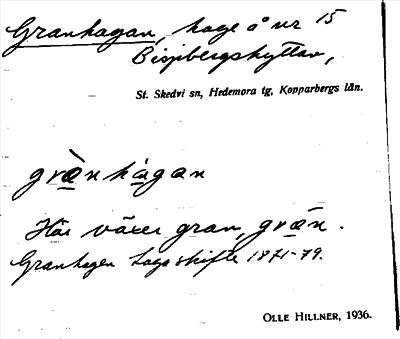 Granhagan, hage å nr 15
Bispbergshyttan,
St. Skedvi sn, Hedemora tg, Kopparbergs län.
græ̀nhágan
Här växer gran, grǣn.
Granhagen Laga skifte 1871-79.
OLLE HILLNER, 1936.